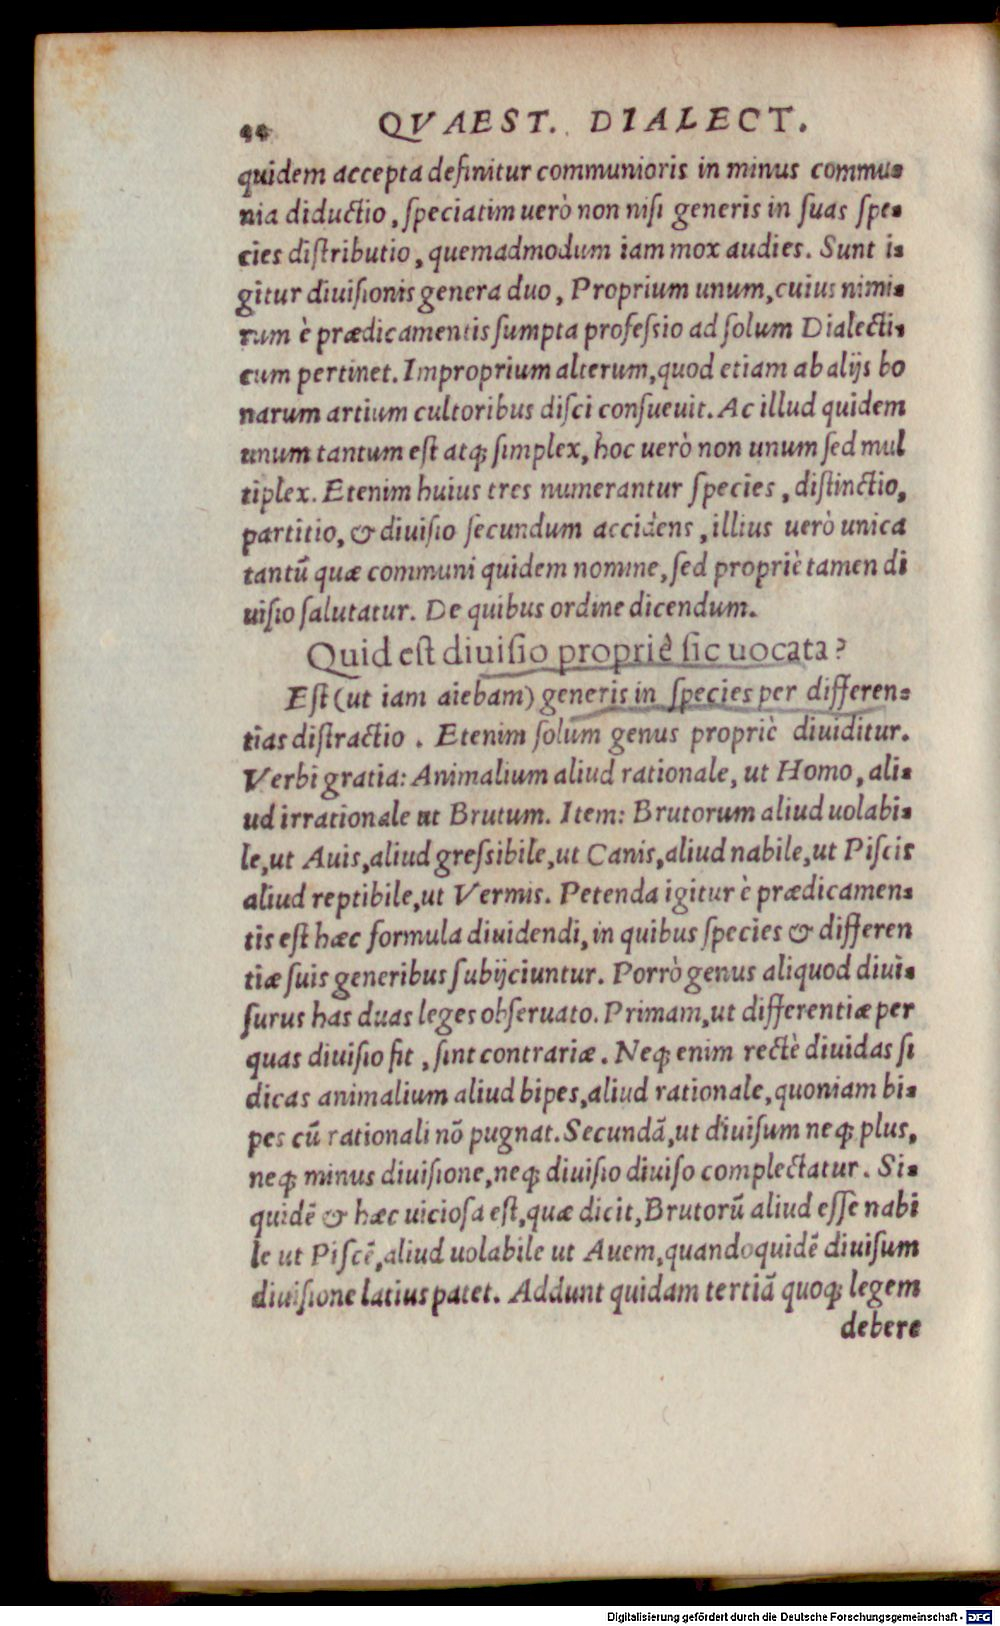 QVAEST. DIALECT.
quidem accepta definitur communioris in minus commu-
nia diductio, ſpeciatim uerò non niſi generis in ſuas ſpe-
cies diſtributio, quemadmodum iam mox audies. Sunt i-
gitur diuiſionis genera duo, Proprium unum, cuius nimi-
rum è prædicamentis ſumpta profeſsio ad ſolum Dialecti-
cum pertinet. Improprium alterum, quod etiam ab alijs bo
narum artium cultoribus diſci conſueuit. Ac illud quidem
unum tantum eſt atq; ſimplex, hoc uerò non unum ſed mul
tiplex. Etenim huius tres numerantur ſpecies, diſtinctio,
partitio, & diuiſio ſecundum accidens, illius uerò unica
tantũ quæ communi quidem nomine, ſed propriè tamen di
uiſio ſalutatur. De quibus ordine dicendum.
Quid eſt diuiſio propriè ſic uocata?
Eſt (ut iam aiebam) generis in ſpecies per differen-
tias diſtractio. Etenim ſolum genus propriè diuiditur.
Verbi gratia: Animalium aliud rationale, ut Homo, ali-
ud irrationale ut Brutum. Item: Brutorum aliud uolabi-
le, ut Auis, aliud greſsibile, ut Canis, aliud nabile, ut Piſcis
aliud reptibile, ut Vermis. Petenda igitur è prædicamen-
tis eſt hæc formula diuidendi, in quibus ſpecies & differen
tiæ ſuis generibus ſubijciuntur. Porrò genus aliquod diui-
ſurus has duas leges obſeruato. Primam, ut differentiæ per
quas diuiſio fit, ſint contrariæ. Neq; enim rectè diuidas ſi
dicas animalium aliud bipes, aliud rationale, quoniam bi-
pes cũ rationali nõ pugnat. Secundã, ut diuiſum neq; plus,
neq; minus diuiſione, neq; diuiſio diuiſo complectatur. Si-
quidẽ & hæc uicioſa eſt, quæ dicit, Brutorũ aliud eſſe nabi
le ut Piſcẽ, aliud uolabile ut Auem, quandoquidẽ diuiſum
diuiſione latius patet. Addunt quidam tertiã quoq; legem
debere
Digitalisierung gefördert durch die Deutsche Forschungsgemeinschaft - DFG